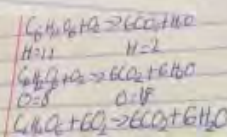 C₆H₁₂O₆+O₂→6CO₂+H₂O
H=12 H=2
C₆H₁₂O₆+O₂→6CO₂+6H₂O
O=8 O=18
C₆H₁₂O₆+6O₂→6CO₂+6H₂O